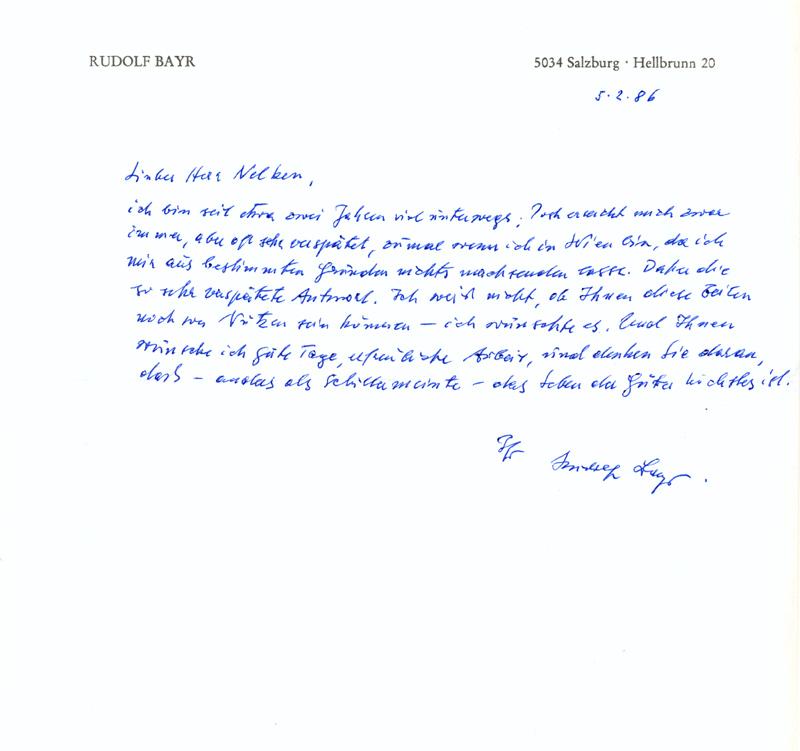 RUDOLF BAYR
5034 Salzburg · Hellbrunn 20
5.2.86
Lieber Herr Nelken,
ich bin seit etwa zwei Jahren viel unterwegs. Post erreicht mich zwar
immer, aber oft sehr verspätet, zumal wenn ich in Wien bin, da ich
mir aus bestimmten Gründen nichts nachsenden lasse. Daher die
so sehr verspätete Antwort. Ich weiß nicht, ob Ihnen diese Zeilen
noch von Nutzen sein können – ich wünschte es. Und Ihnen
wünsche ich gute Tage, erfreuliche Arbeit, und denken Sie daran,
daß – anders als Schiller meinte – das Leben der Güter höchstes ist.
Ihr
Rudolf Bayr.